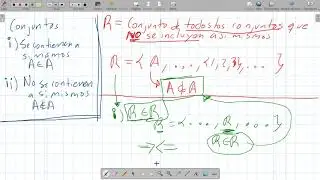 Conjuntos
i) Se contienen a
si mismos
A∈A
ii) No se contienen
a si mismos
A∉A
R = Conjunto de todos los conjuntos que
NO se incluyen a si mismos
R = { A, ..., {1,2,3}, ... }
A∉A
i) R∈R
R = { ..., R, ... }
R∈R
→←=